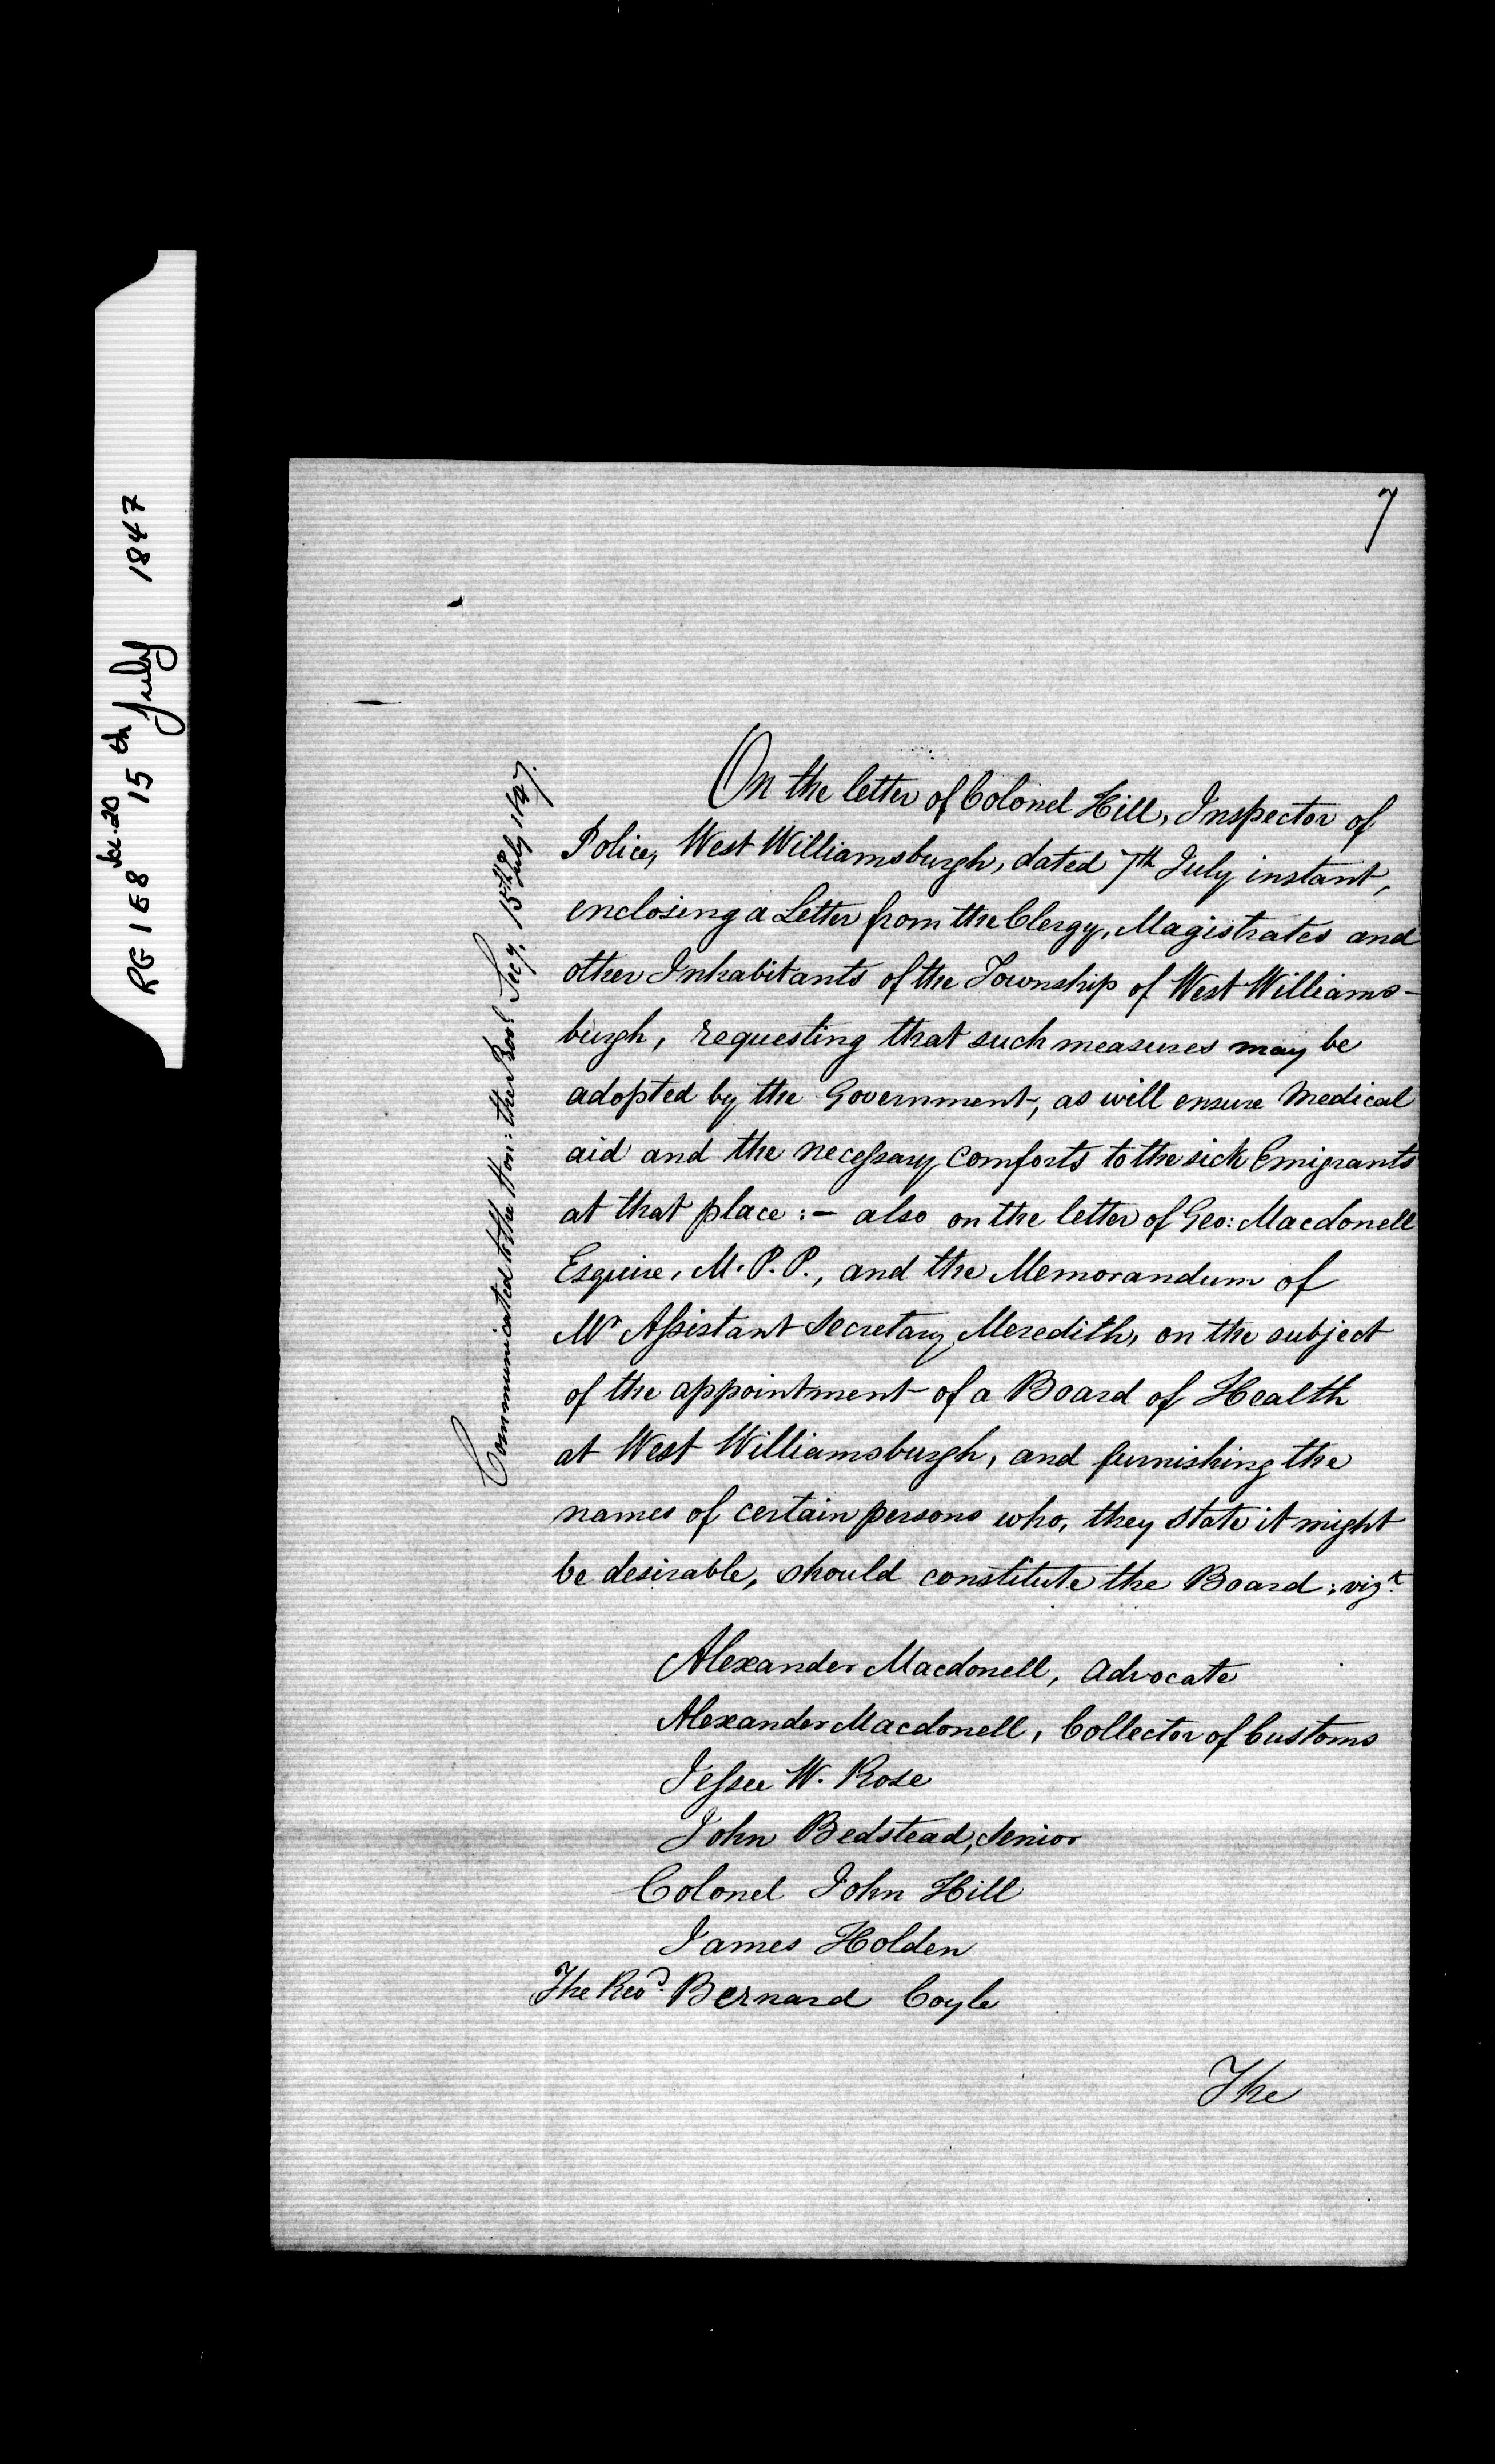 RG 1 E8 Vol. 20 15th July 1847
7
Communicated to the Hon: the Prov.l Secy, 15th July 1847.
On the letter of Colonel Hill, Inspector of
Police, West Williamsburgh, dated 7th July instant,
enclosing a Letter from the Clergy, Magistrates and
other Inhabitants of the Township of West Williams-
burgh, requesting that such measures may be
adopted by the Government, as will ensure Medical
aid and the necessary Comforts to the sick Emigrants
at that place :- also on the letter of Geo: Macdonell
Esquire, M.P.P., and the Memorandum of
Mr Assistant Secretary Meredith, on the subject
of the appointment of a Board of Health
at West Williamsburgh, and furnishing the
names of certain persons who, they state it might
be desirable, should constitute the Board; vizt.
Alexander Macdonell, Advocate
Alexander Macdonell, Collector of Customs
Jessee W. Rose
John Bedstead, Senior
Colonel John Hill
James Holden
The Revd. Bernard Coyle
The